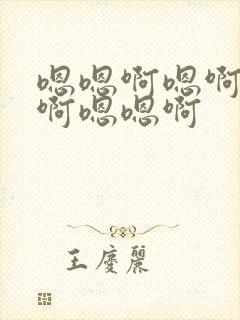 嗯嗯啊嗯啊
啊嗯嗯啊
王庆丽